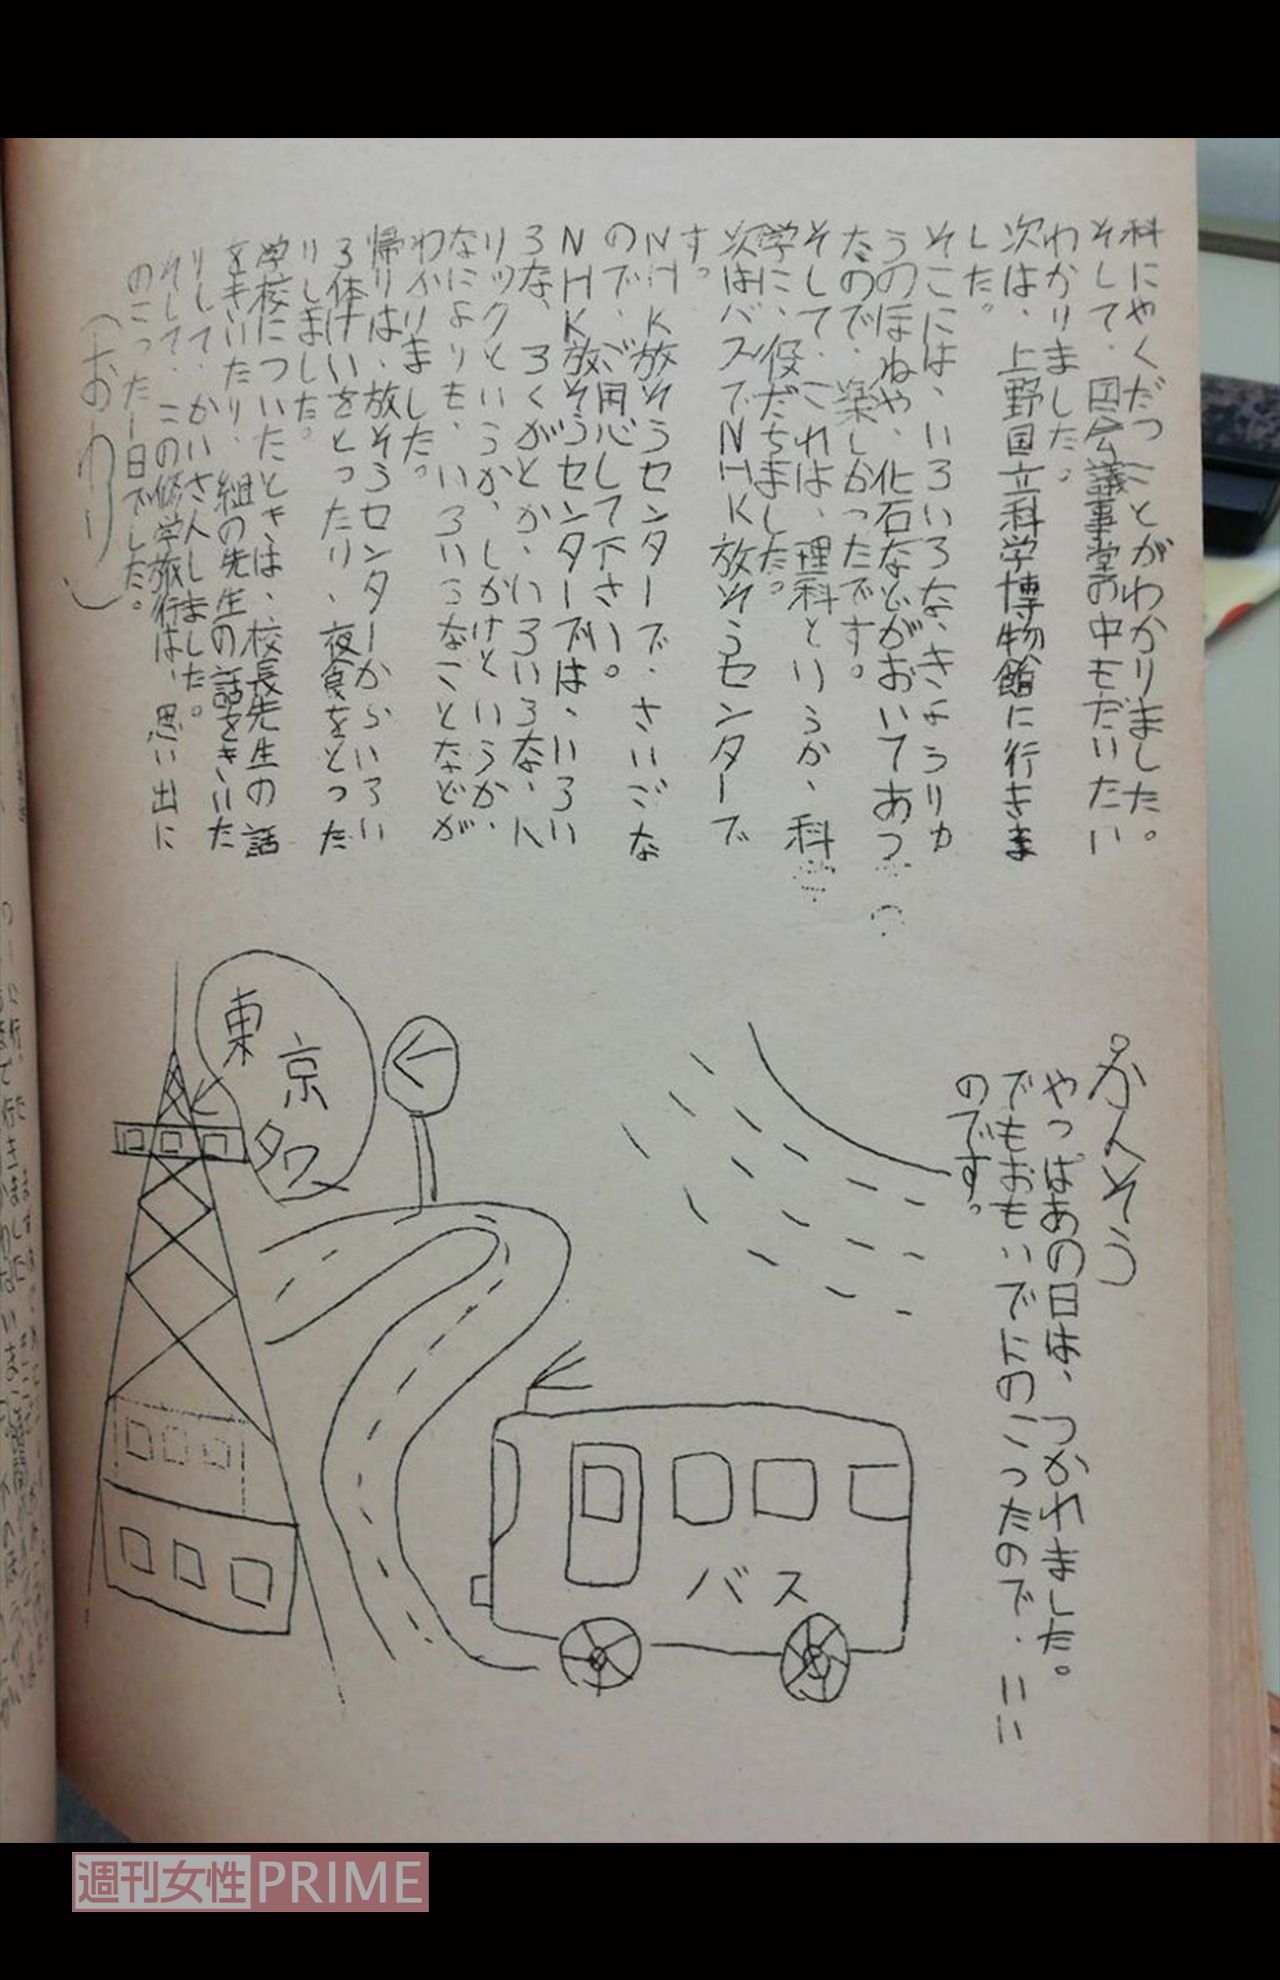 科にやくだつことがわかりました。
そして、国会議事堂の中もだいたい
わかりました。
次は、上野国立科学博物館に行きま
した。
そこには、いろいろな、きょうりゅ
うのほねや、化石などがおいてあっ
たので、楽しかったです。
そして、これは、理科というか、科
学に、役だちました。
次はバスでNHK放そうセンターで
す。
NHK放そうセンターで、さいごな
ので、ご用心して下さい。
NHK放そうセンターでは、いろい
ろな、ろくがとか、いろいろな、ト
リックというか、しかけというか、
なによりも、いろいろなことなどが
わかりました。
帰りは、放そうセンターからいろい
ろ体けいをとったり、夜食をとった
りしました。
学校についたときは、校長先生の話
をきいたり、組の先生の話をきいた
りして、かいさんしました。
そして、この修学旅行は、思い出に
のこった一日でした。
(おわり)
かんそう
やっぱあの日は、つかれました。
でもおもいでにのこったので、いい
のです。
東京タワー
バス
週刊女性PRIME